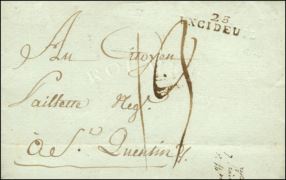 23
EXCIDEU
Au Citoyen
Paillette Neg.t
à S.t Quentin